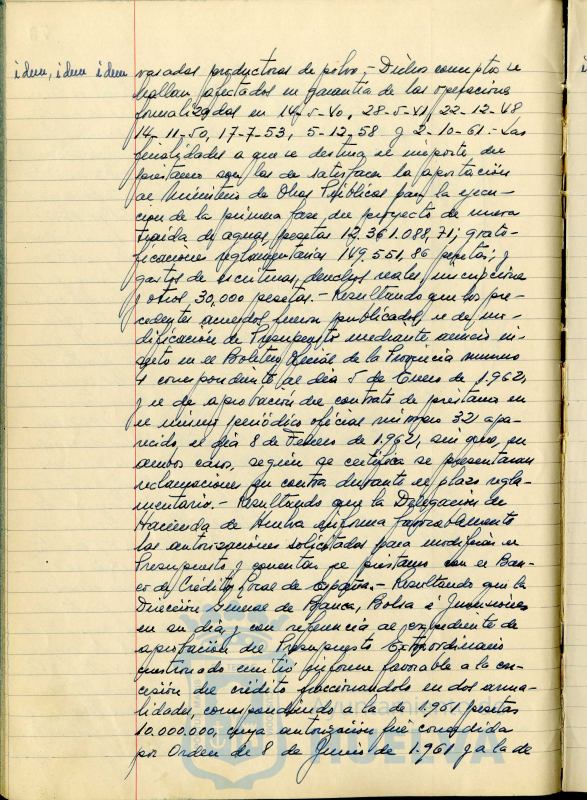 idem, idem idem
vasados productoras de pelvo.- Dichos conceptos se
hallan afectados en garantía de las operaciones
formalizadas en 14-5-40, 28-5-41, 22-12-48
14-11-50, 17-7-53, 5-12-58 y 2-10-61.- Las
finalidades a que se destina el importe del
préstamo son las de satisfacer la aportación
al Ministerio de Obras Públicas para la ejecu-
ción de la primera fase del proyecto de nueva
traida de aguas, pesetas 12.361.088,71; grati-
ficaciones reglamentarias 149.551,86 pesetas; y
gastos de escrituras, derechos reales, inscripciones
y otros, 30,000 pesetas.- Resultando que los pre-
cedentes acuerdos fueron publicados, el de mo-
dificación de Presupuesto mediante anuncio in-
serto en el Boletín Oficial de la Provincia numero
4 correspondiente al dia 5 de Enero de 1.962,
y el de aprobación del contrato de préstamo en
el mismo periódico oficial número 32, apa-
recido el dia 8 de Febrero de 1.962, sin que, en
ambos casos, según se certifica se presentaran
reclamaciones en contra durante el plazo regla-
mentario.- Resultando que la Delegación de
Hacienda de Huelva informa favorablemente
las autorizaciones solicitadas para modificar el
Presupuesto y concertar el préstamo con el Ban-
co de Crédito Local de España.- Resultando que la
Dirección General de Banca, Bolsa é Inversiones
en su dia, y con referencia al expediente de
aprobación del Presupuesto Extraordinario
cuestionado emitió informe favorable a la con-
cesión del crédito fraccionandolo en dos anua-
lidades, correspondiendo a la de 1.961 pesetas
10.000.000, cuya autorización fué concedida
por Orden de 8 de Junio de 1.961 y a la de
HUELVA